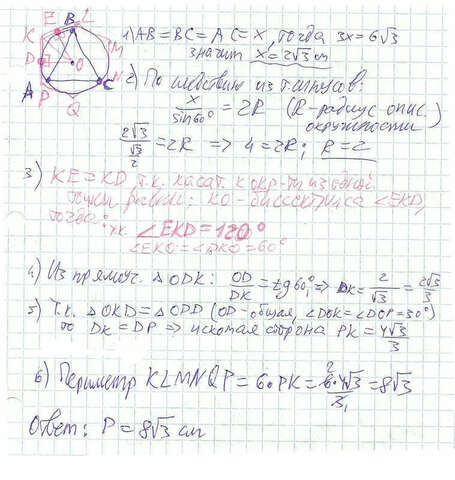 E B L
K M
D O
A N
P C
Q
1) AB = BC = AC = x, тогда 3x = 6√3
значит x = 2√3 см
2) По следствию из т. синусов:
x/sin60° = 2R (R - радиус опис. окружности)
2√3/(√3/2) = 2R => 4 = 2R; R = 2
3) KE = KD т.к. касат. к окр-ти из одной
точки равны; KO - биссектриса ∠EKD,
тогда т.к. ∠EKD = 120°
∠EKO = ∠DKO = 60°
4) Из прямоуг. △ODK: OD/DK = tg60° => DK = 2/√3 = 2√3/3
5) Т.к. △OKD = △OPD (OD - общая, ∠DOK = ∠DOP = 30°)
то DK = DP => искомая сторона PK = 4√3/3
6) Периметр KLMNQP = 6·PK = 6·4√3/3 = 8√3
Ответ: P = 8√3 см